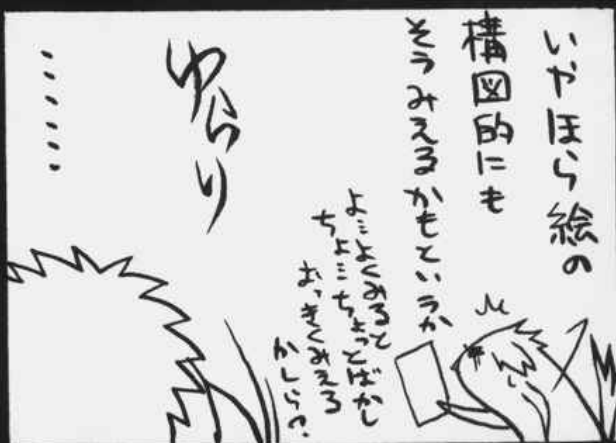 いやほら絵の
構図的にも
そうみえるかもというか
よ…よくみると
ちょ…ちょっとばかし
おっきくみえる
かしら?
ゆらり
......